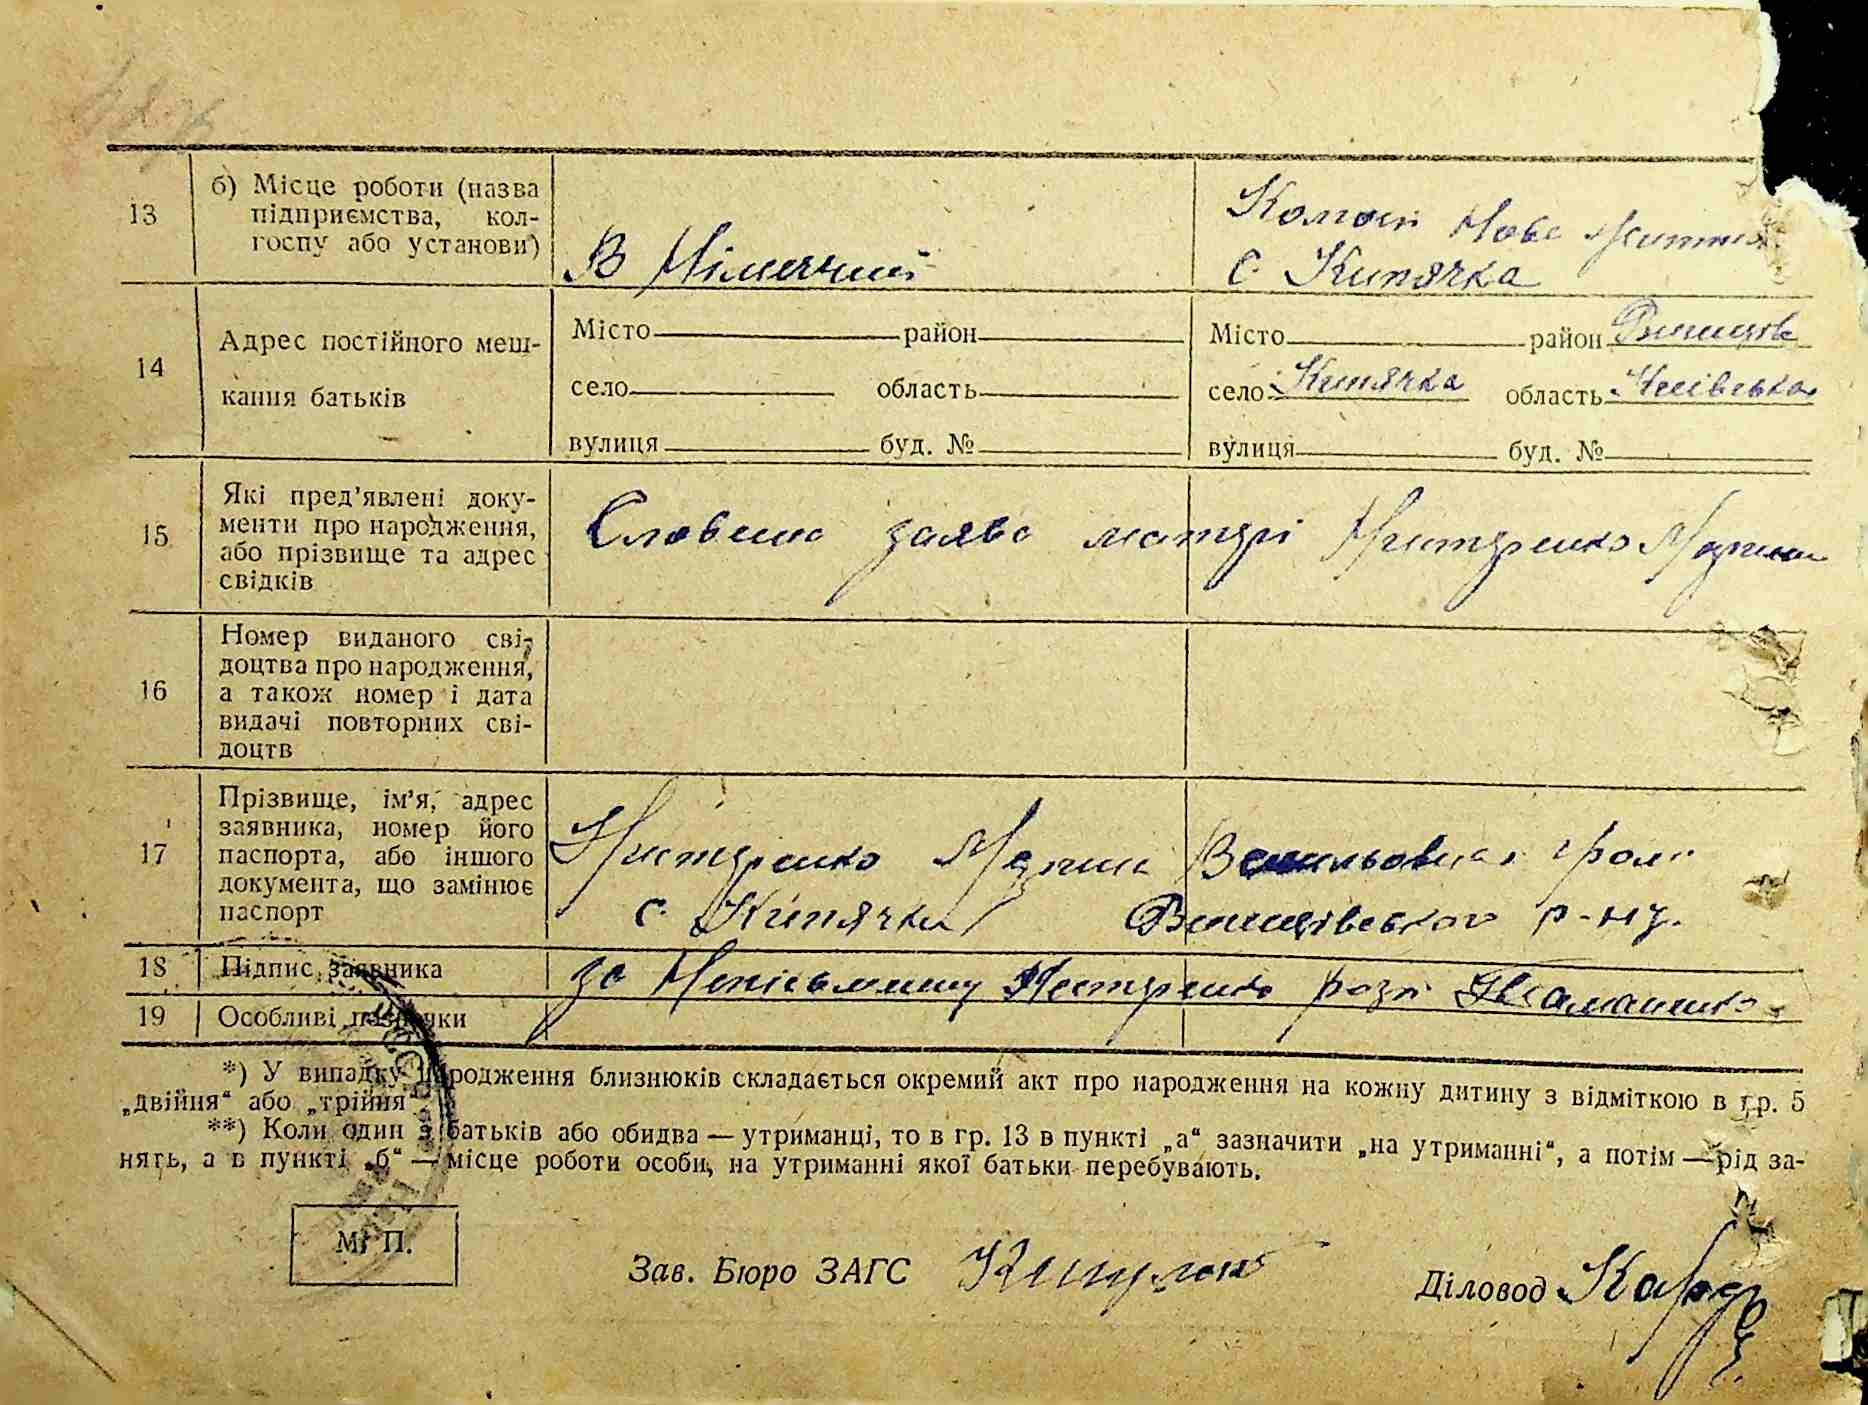 13
б) Місце роботи (назва
підприємства, кол-
госпу або установи)
В Німеччині
Колгосп Нове Життя
с. Кип'ячка
14
Адрес постійного меш-
кання батьків
Місто район
село область
вулиця буд. №
Місто район
село Кипячка область Київська
вулиця буд. №
15
Які пред'явлені доку-
менти про народження,
або прізвище та адрес
свідків
Словесна заява матері Нистеренко Марини
16
Номер виданого сві-
доцтва про народження,
а також номер і дата
видачі повторних сві-
доцтв
17
Прізвище, ім'я, адрес
заявника, номер його
паспорта, або іншого
документа, що замінює
паспорт
Нистеренко Марина Васильовна
с. Кипячка р-ну.
18 Підпис заявника
за Неписьменну Нестеренко розп
19 Особливі позначки
*) У випадку народження близнюків складається окремий акт про народження на кожну дитину з відміткою в гр. 5
„двійня“ або „трійня“
**) Коли один з батьків або обидва — утриманці, то в гр. 13 в пункті „а“ зазначити „на утриманні“, а потім — рід за-
нять, а в пункті „б“ — місце роботи особи, на утриманні якої батьки перебувають.
М. П.
Зав. Бюро ЗАГС
Діловод